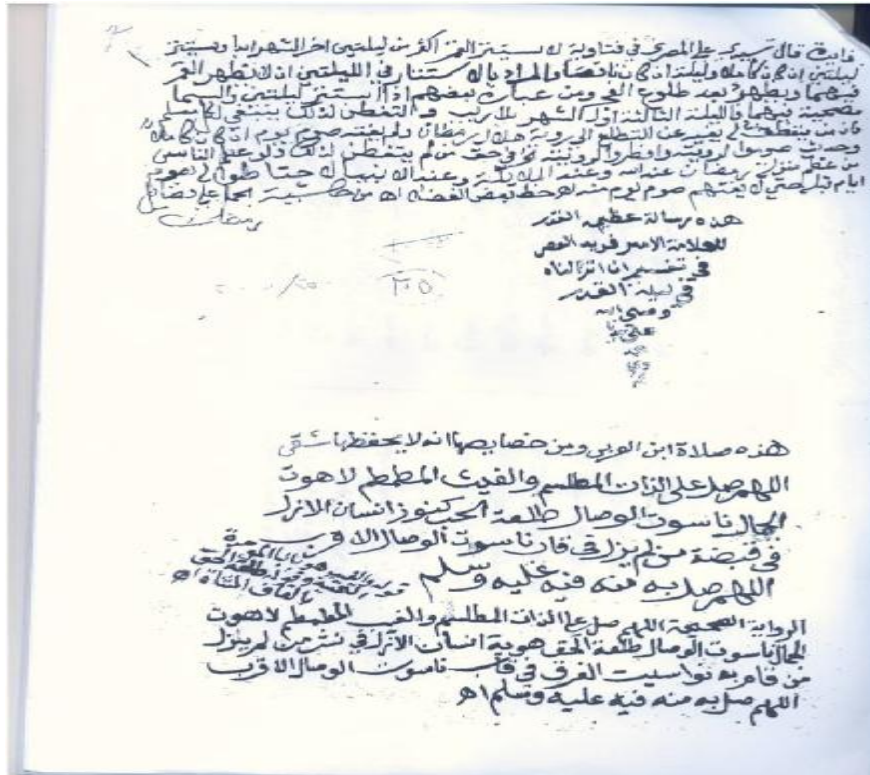 فايدة قال سيدي علي المصري في فتاويه لا يستتر القمر اكثر من ليلتين اخر الشهر ابدا ويستتر
ليلتين ان كان كاملا وليلة ان كان ناقصا والمراد بالاستتار في الليلتين ان لا يظهر القمر
فيهما ويظهر بعد طلوع الفجر ومن عبارة بعضهم اذا استتر ليلتين والسما
مصحية فيهما فالليلة الثالثة اول الشهر بلا ريب والتفطن لذلك ينبغي لكل مسلم
فان من يتفطن له يغنيه عن التطلع الى روية هلال رمضان ولم يفته صوم يوم ان كان كاملا
وحديث صوموا لرويته وافطروا لرويته في حق من لم يتفطن لذلك ولو علم الناس
من عظم منزلة رمضان عند الله وعند الملائكة وعند الانبيا لاحتاطوا له بصوم
ايام قبله حتى لا يفتهم صوم يوم منه اهـ خط بعض الفضلا اهـ من حاشية على فضائل
رمضان
هذه رسالة عظيمة القدر
للعلامة الامير فريد العصر
في تفسير انا انزلناه
في ليلة القدر
وصلى الله
على
٢٠٥
هذه صلاة ابن العربي ومن خصايصها انه لا يحفظها شقي
اللهم صل على الذات المطلسم والغيث المطمطم لاهوت
الجمال ناسوت الوصال طلعة الحق كنوز انسان الازل
في قبضة من لم يزل في قاب ناسوت الوصال الاقرب
اللهم صل به منه فيه عليه وسلم
الرواية الصحيحة اللهم صل على الذات المطلسم والغيب المطمطم لاهوت
الجمال ناسوت الوصال طلعة الحق هوية انسان الازل في نشر من لم يزل
من قام به نواسيت الفرق في قاب ناسوت الوصال الاقرب
اللهم صل به منه فيه عليه وسلم اهـ